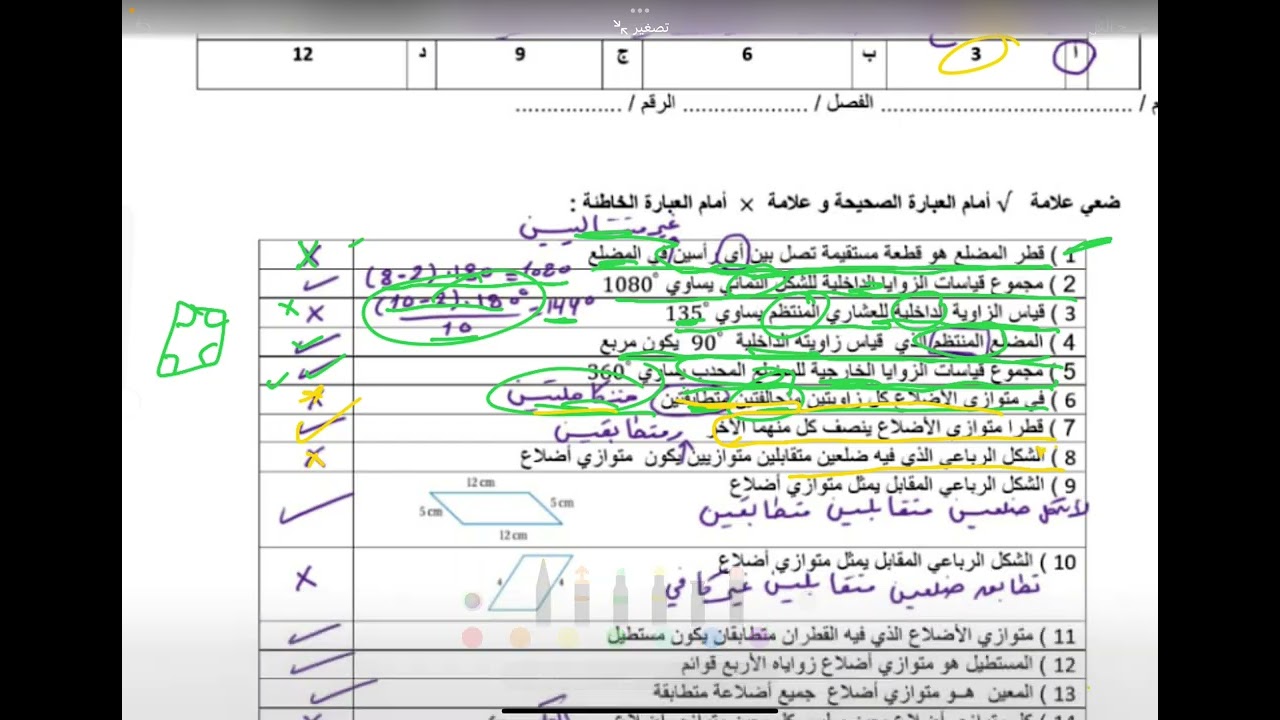 تصغير
أ 3 ب 6 ج 9 د 12
م / ........................................ الفصل / ................... الرقم / ................
ضعي علامة √ أمام العبارة الصحيحة و علامة × أمام العبارة الخاطئة :
غير متتاليين
1 ) قطر المضلع هو قطعة مستقيمة تصل بين أي رأسين في المضلع ×
2 ) مجموع قياسات الزوايا الداخلية للشكل الثماني يساوي 1080° (8-2).180 = 1080 ✓
3 ) قياس الزاوية الداخلية للعشاري المنتظم يساوي 135° (10-2).180° / 10 = 144° ×
4 ) المضلع المنتظم الذي قياس زاويته الداخلية 90° يكون مربع ✓
5 ) مجموع قياسات الزوايا الخارجية للمضلع المحدب يساوي 360° ✓
6 ) في متوازي الأضلاع كل زاويتين متحالفتين متطابقتين متكاملتين ×
7 ) قطرا متوازي الأضلاع ينصف كل منهما الآخر ✓
ومتطابقين
8 ) الشكل الرباعي الذي فيه ضلعين متقابلين متوازيين يكون متوازي أضلاع ×
9 ) الشكل الرباعي المقابل يمثل متوازي أضلاع ✓
12 cm
5 cm 5 cm
12 cm
لأن كل ضلعين متقابلين متطابقين
10 ) الشكل الرباعي المقابل يمثل متوازي أضلاع ×
4 4
تطابق ضلعين متقابلين غير كافي
11 ) متوازي الأضلاع الذي فيه القطران متطابقان يكون مستطيل ✓
12 ) المستطيل هو متوازي أضلاع زواياه الأربع قوائم ✓
13 ) المعين هـو متوازي أضلاع جميع أضلاعة متطابقة ✓